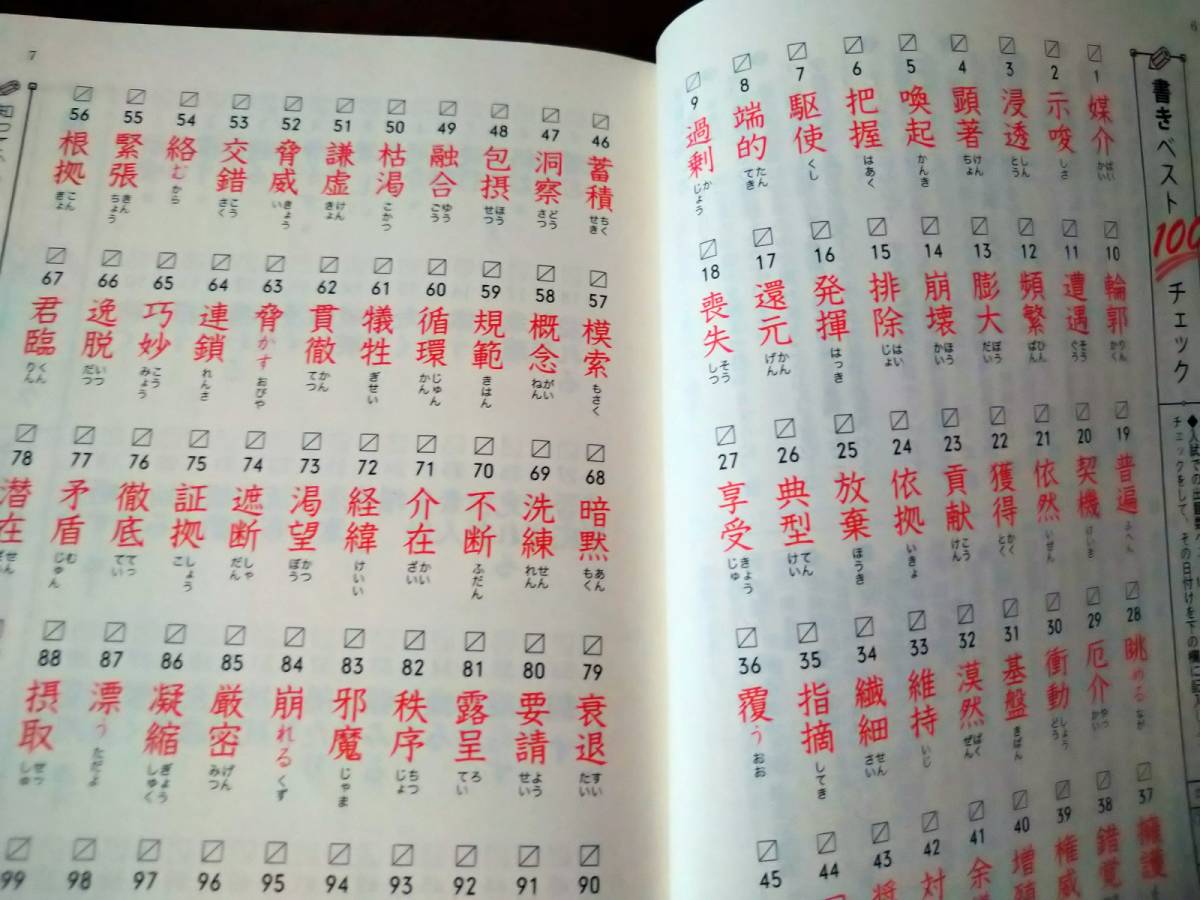 6
書きベスト100チェック
チェックをして、その日付けを下の欄に
1 媒介 ばいかい
2 示唆 しさ
3 浸透 しんとう
4 顕著 けんちょ
5 喚起 かんき
6 把握 はあく
7 駆使 くし
8 端的 たんてき
9 過剰 かじょう
10 輪郭 りんかく
11 遭遇 そうぐう
12 頻繁 ひんぱん
13 膨大 ぼうだい
14 崩壊 ほうかい
15 排除 はいじょ
16 発揮 はっき
17 還元 かんげん
18 喪失 そうしつ
19 普遍 ふへん
20 契機 けいき
21 依然 いぜん
22 獲得 かくとく
23 貢献 こうけん
24 依拠 いきょ
25 放棄 ほうき
26 典型 てんけい
27 享受 きょうじゅ
28 眺める なが
29 厄介 やっかい
30 衝動 しょうどう
31 基盤 きばん
32 漠然 ばくぜん
33 維持 いじ
34 繊細 せんさい
35 指摘 してき
36 覆う おお
37 擁護
38 錯覚
39 権威
40 増殖
41 余
42 対
43 将
44
45
7
46 蓄積 ちくせき
47 洞察 どうさつ
48 包摂 ほうせつ
49 融合 ゆうごう
50 枯渇 こかつ
51 謙虚 けんきょ
52 脅威 きょうい
53 交錯 こうさく
54 絡む から
55 緊張 きんちょう
56 根拠 こんきょ
57 模索 もさく
58 概念 がいねん
59 規範 きはん
60 循環 じゅんかん
61 犠牲 ぎせい
62 貫徹 かんてつ
63 脅かす おびや
64 連鎖 れんさ
65 巧妙 こうみょう
66 逸脱 いつだつ
67 君臨 くんりん
68 暗黙 あんもく
69 洗練 せんれん
70 不断 ふだん
71 介在 かいざい
72 経緯 けいい
73 渇望 かつぼう
74 遮断 しゃだん
75 証拠 しょうこ
76 徹底 てってい
77 矛盾 むじゅん
78 潜在 せんざい
79 衰退 すいたい
80 要請 ようせい
81 露呈 ろてい
82 秩序 ちつじょ
83 邪魔 じゃま
84 崩れる くず
85 厳密 げんみつ
86 凝縮 ぎょうしゅく
87 漂う ただよ
88 摂取 せっしゅ
90
91
92
93
94
95
96
97
98
99